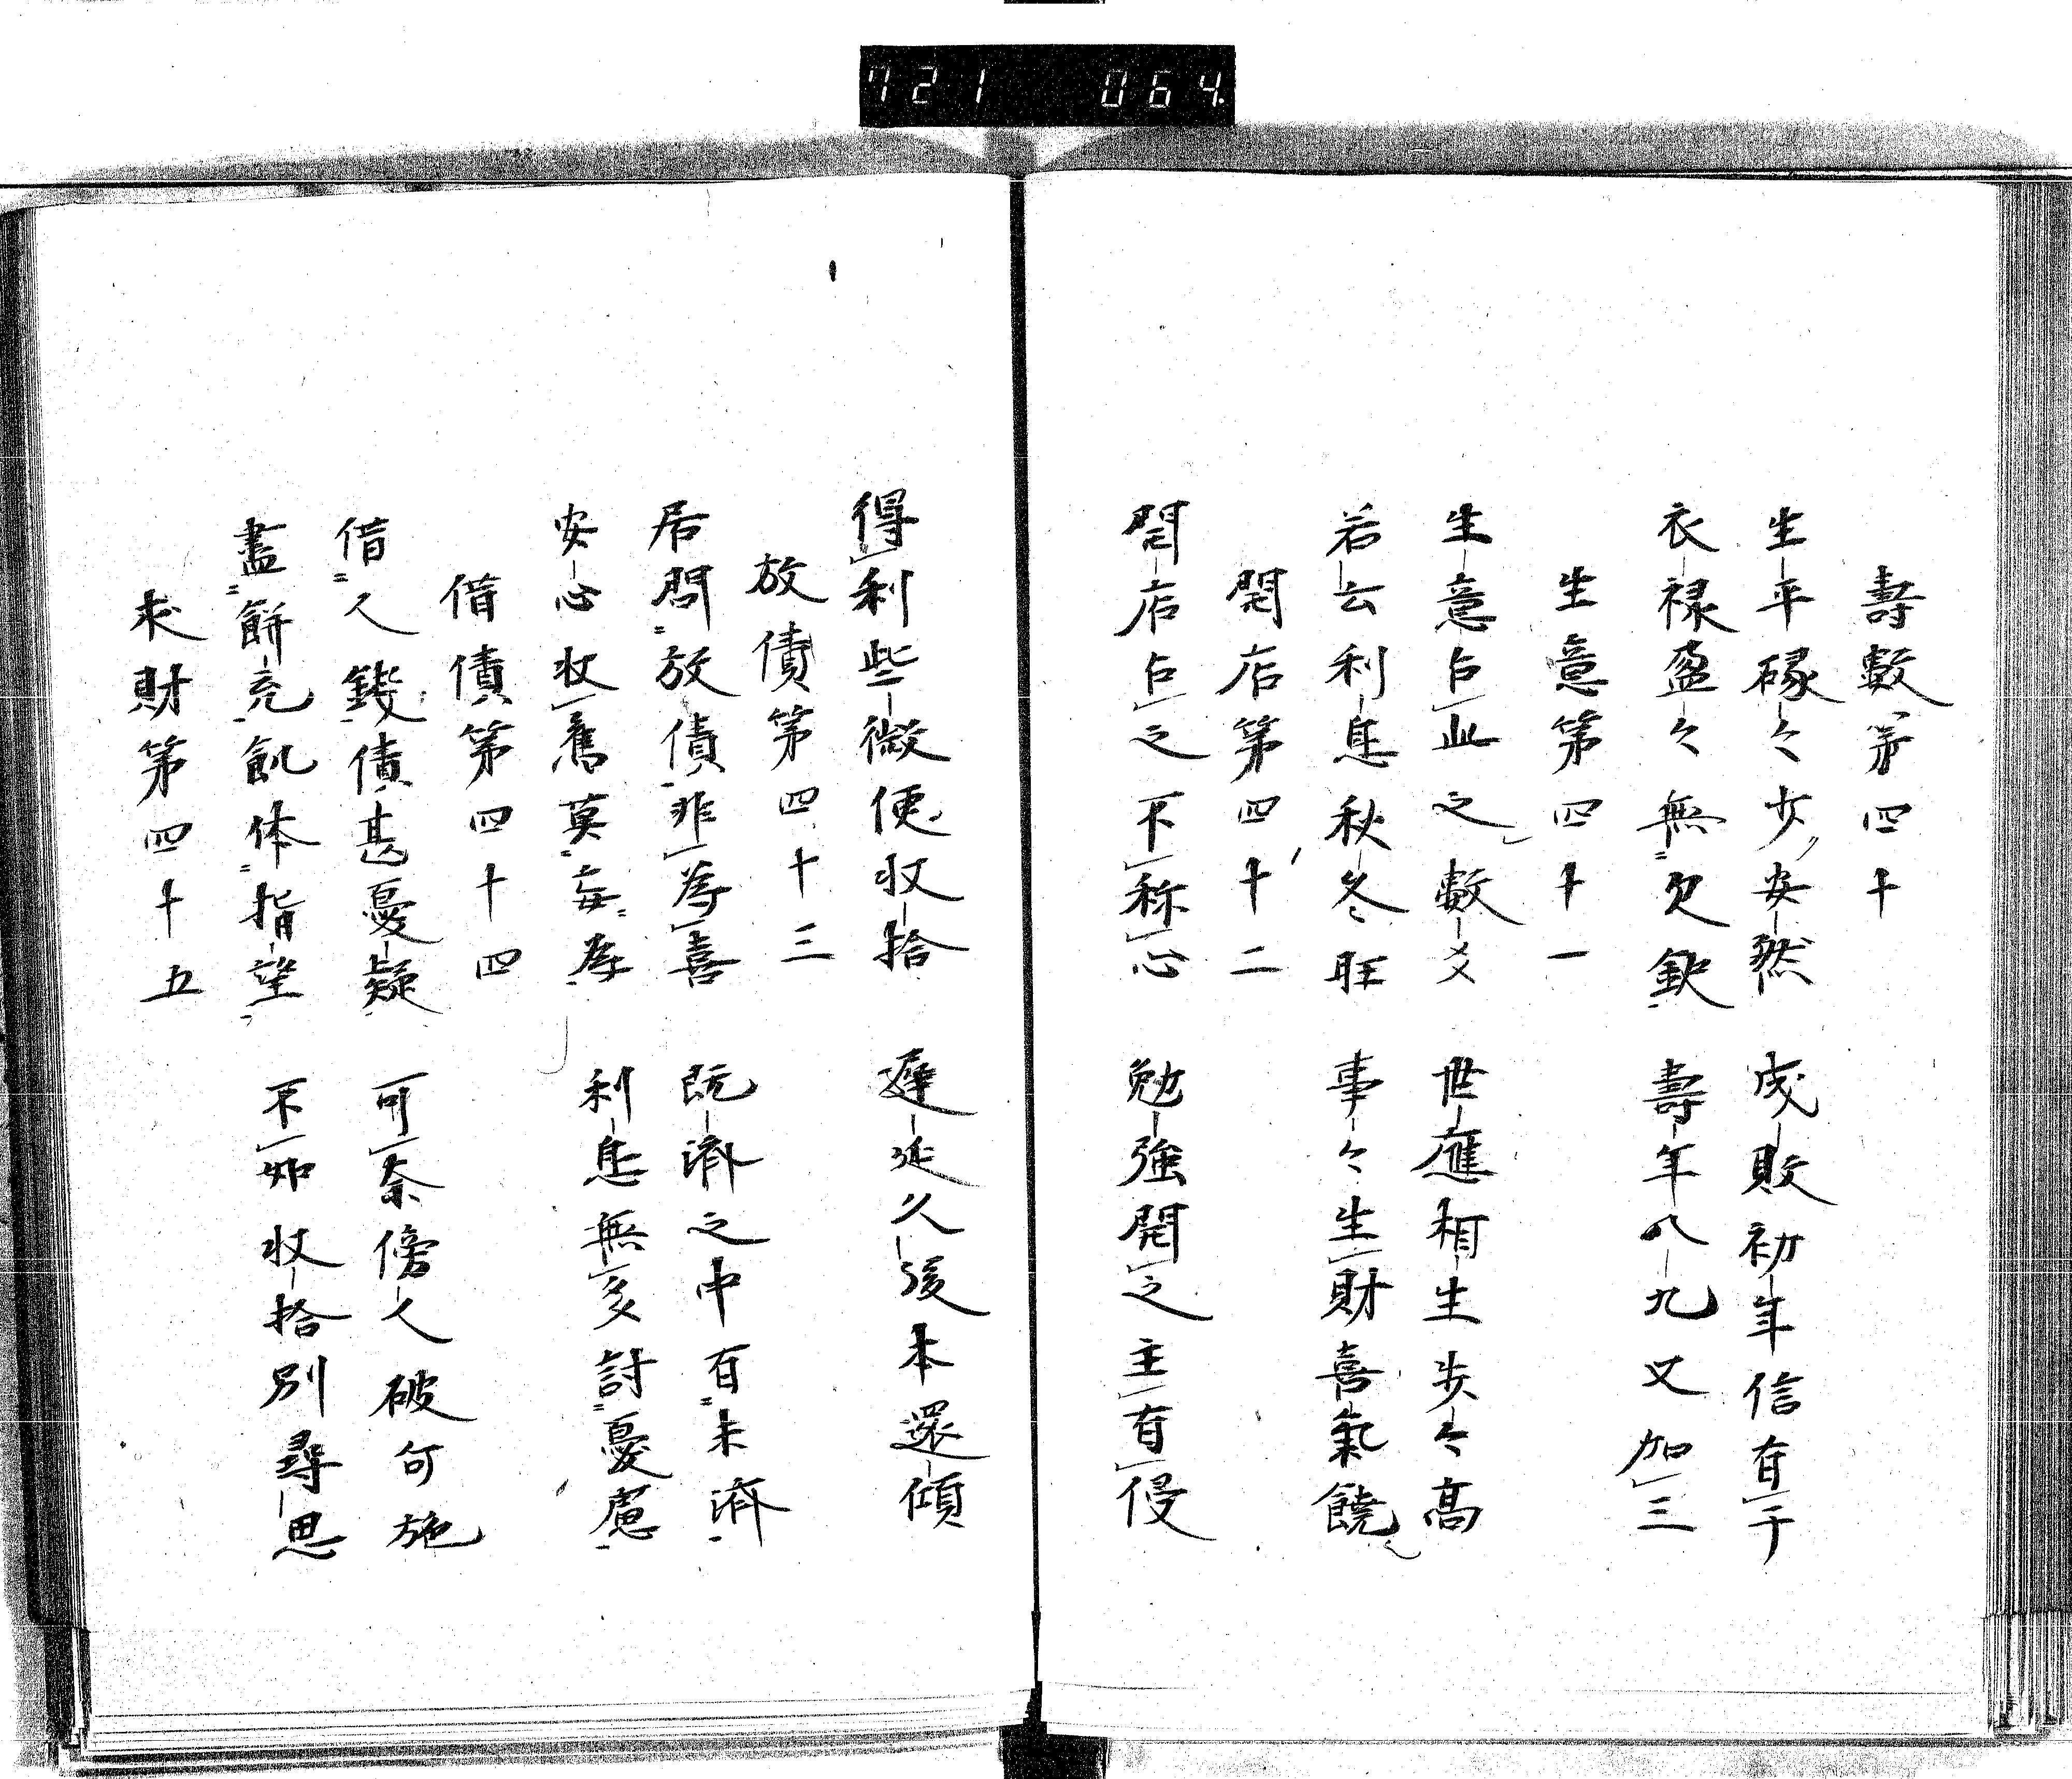 721 064
壽數第四十
生平碌々少安然 成敗初年信有于
衣禄盈々無欠缺 壽年八九又加三
生意第四十一
生意占此之數爻 世應相生步々高
若云利息秋冬旺 事々生財喜氣饒
開店第四十二
開店占之不称心 勉強開之主有侵
得利些微便收拾 遲延久後本還傾
放債第四十三
居問放債非為喜 既濟之中有未濟
安心收舊莫妄為 利息無多討憂慮
借債第四十四
借人錢債甚憂疑 可奈傍人破何施
畫餅充飢休指望 不如收拾別尋思
求財第四十五